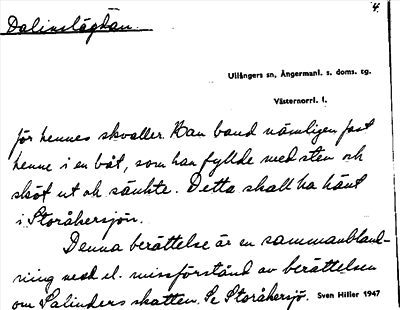 4.
Dalinslägdan.
Ullångers sn, Ångermanl. s. doms. tg.
Västernorrl. l.
för hennes skvaller. Han band nämligen fast
henne i en båt, som han fyllde med sten och
sköt ut och sänkte. Detta skall ha hänt
i Storåkersjön.
Denna berättelse är en sammanbland-
ning med el. missförstånd av berättelsen
om Salinders skatten. Se Storåkersjö. Sven Hiller 1947